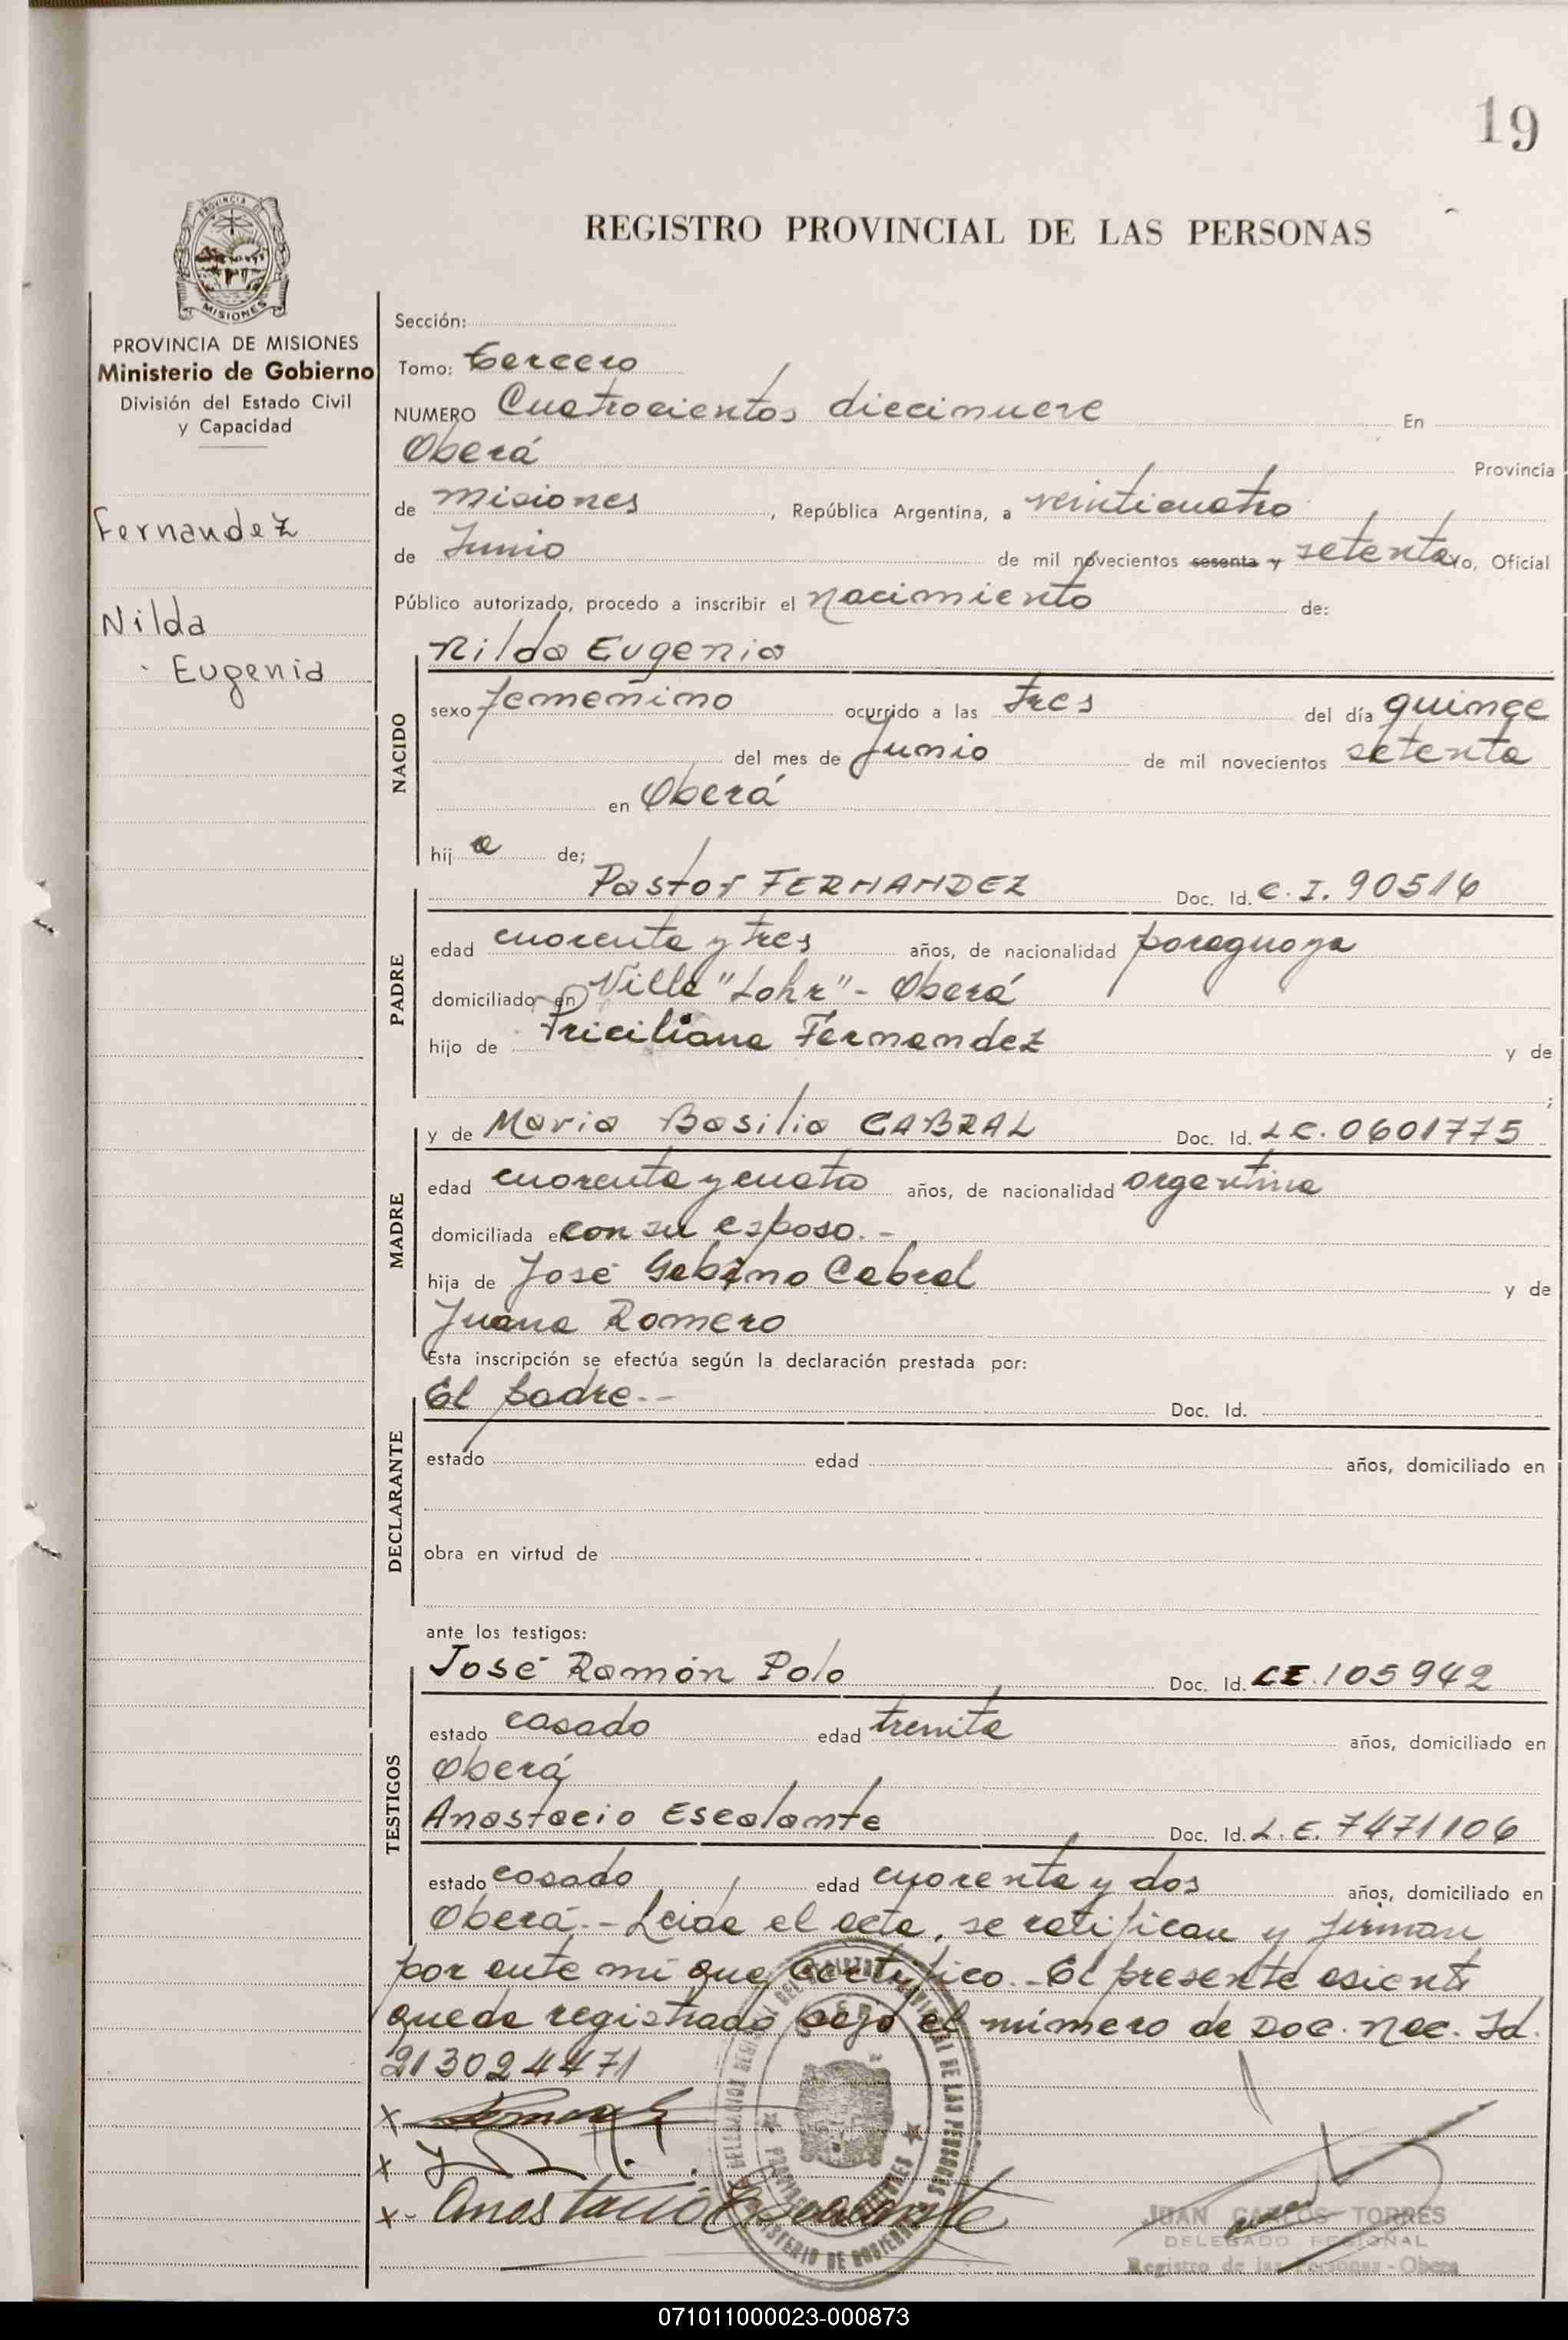 19
PROVINCIA DE
MISIONES
REGISTRO PROVINCIAL DE LAS PERSONAS
PROVINCIA DE MISIONES
Ministerio de Gobierno
División del Estado Civil
y Capacidad
Fernandez
Nilda
Eugenia
Sección:
Tomo: tercero
NUMERO Cuatrocientos diecinueve En
Oberá Provincia
de Misiones, República Argentina, a veinticuatro
de Junio de mil novecientos sesenta y setenta yo, Oficial
Público autorizado, procedo a inscribir el nacimiento de:
NACIDO
Nilda Eugenia
sexo femenino ocurrido a las tres del día quince
del mes de Junio de mil novecientos setenta
en Oberá
hij a de;
PADRE
Pastor FERNANDEZ Doc. Id. C. I. 90516
edad cuarenta y tres años, de nacionalidad paraguaya
domiciliado en Villa "Lohr" - Oberá
hijo de Priciliana Fernandez y de
;
MADRE
y de Maria Basilia CABRAL Doc. Id. L C. 0601775
edad cuarenta y cuatro años, de nacionalidad argentina
domiciliada en con su esposo. -
hija de José Gabino Cabral y de
Juana Romero
Esta inscripción se efectúa según la declaración prestada por:
DECLARANTE
El padre.-- Doc. Id.
estado edad años, domiciliado en
obra en virtud de
ante los testigos:
TESTIGOS
José Ramón Polo Doc. Id. CE. 105942
estado casado edad treinta años, domiciliado en
Oberá
Anastacio Escalante Doc. Id. L. E. 7471106
estado casado edad cuarenta y dos años, domiciliado en
Oberá.- Leida el acta, se ratifican y firman
por ante mi que certifico.- El presente asiento
queda registrado bajo el número de Doc. Nac. Id.
213024471
x
x
x- Anastacio Escalante
JUAN CARLOS TORRES
DELEGADO REGIONAL
Registro de las Personas - Obera
071011000023-000873